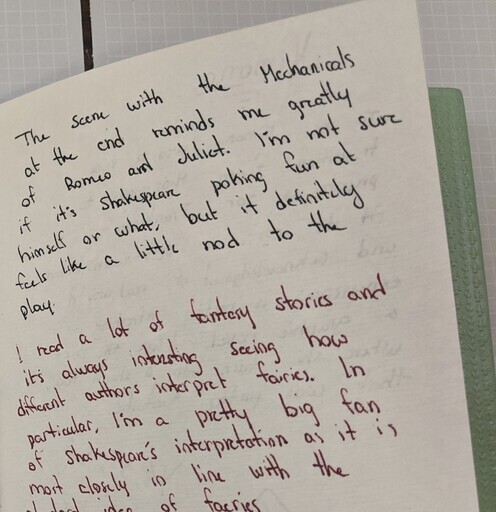 The scene with the Mechanicals
at the end reminds me greatly
of Romeo and Juliet. I'm not sure
if it's Shakespeare poking fun at
himself or what, but it definitely
feels like a little nod to the
play.
I read a lot of fantasy stories and
it's always interesting seeing how
different authors interpret fairies. In
particular, I'm a pretty big fan
of Shakespeare's interpretation as it is
most closely in line with the
idea of faeries